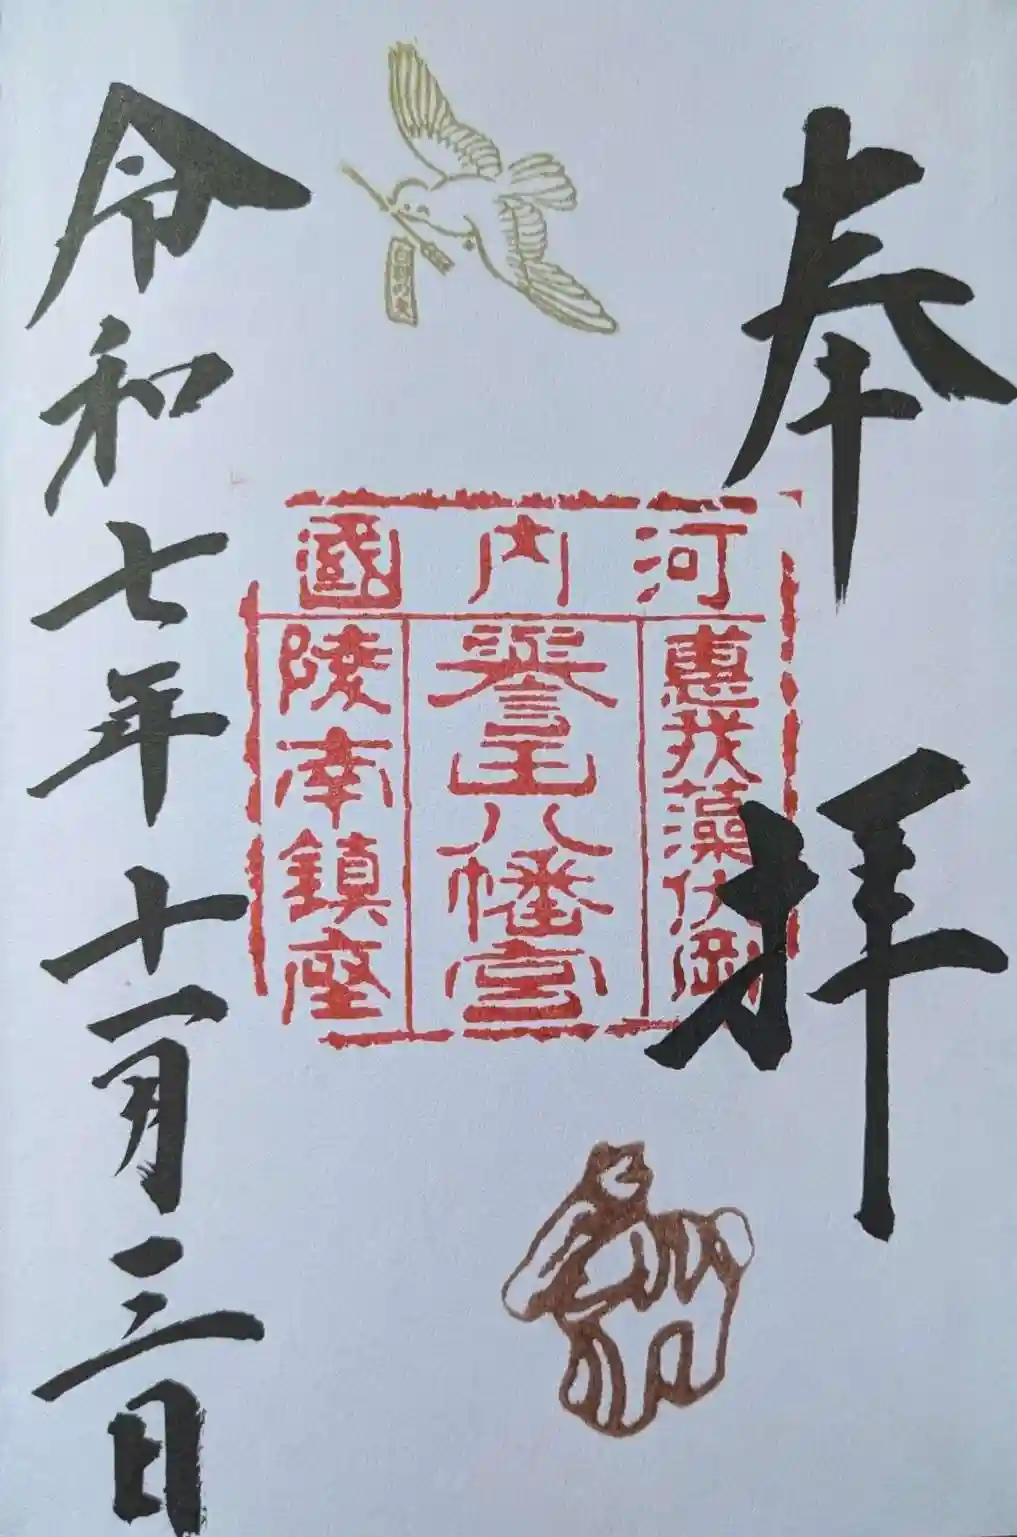 奉拝
河内國
惠我藻伏岡
譽田八幡宮
陵南鎮座
令和七年十一月三日